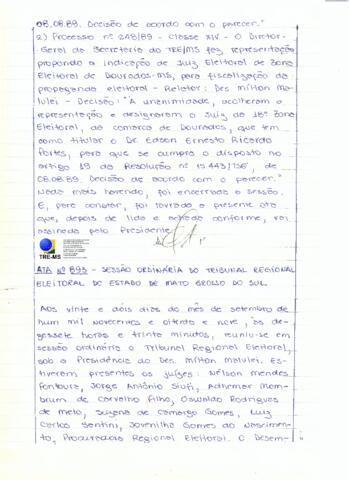 08.08.89. Decisão de acordo com o parecer."
2) Processo nº 248/89 - Classe XIV - O Diretor-
Geral da Secretaria do TRE/MS faz representação
propondo a indicação de Juiz Eleitoral da Zona
Eleitoral de Dourados-MS, para fiscalização da
propaganda eleitoral - Relator: Des Milton Ma
lulei - Decisão: "A unanimidade, acolheram a
representação e designaram o Juiz da 18ª Zona
Eleitoral, da comarca de Dourados, que tem
como titular o Dr. Edson Ernesto Ricardo
Portes, para que se cumpra o disposto no
artigo 19 da Resolução nº 15.443/TSE de
08.08.89. Decisão de acordo com o parecer."
Nada mais havendo, foi encerrada a sessão.
E, para constar, foi lavrada a presente ata
que, depois de lida e achada conforme, vai
assinada pelo Presidente.
TRE-MS
ATA Nº 895 - SESSÃO ORDINÁRIA DO TRIBUNAL REGIONAL
ELEITORAL DO ESTADO DE MATO GROSSO DO SUL.
Aos vinte e dois dias do mês de setembro de
hum mil novecentos e oitenta e nove, às de-
zessete horas e trinta minutos, reuniu-se em
sessão ordinária o Tribunal Regional Eleitoral,
sob a Presidência do Des. Milton Malulei. Es-
tiveram presentes os juízes: Nelson Mendes
Fontoura, Jorge Antônio Siufi, Adhemar Mom-
brum de Carvalho Filho, Oswaldo Rodrigues
de Melo, Suzana de Camargo Gomes, Luiz
Carlos Santini, Jovenilha Gomes do Nascimen-
to, Procuradora Regional Eleitoral. O Desem-